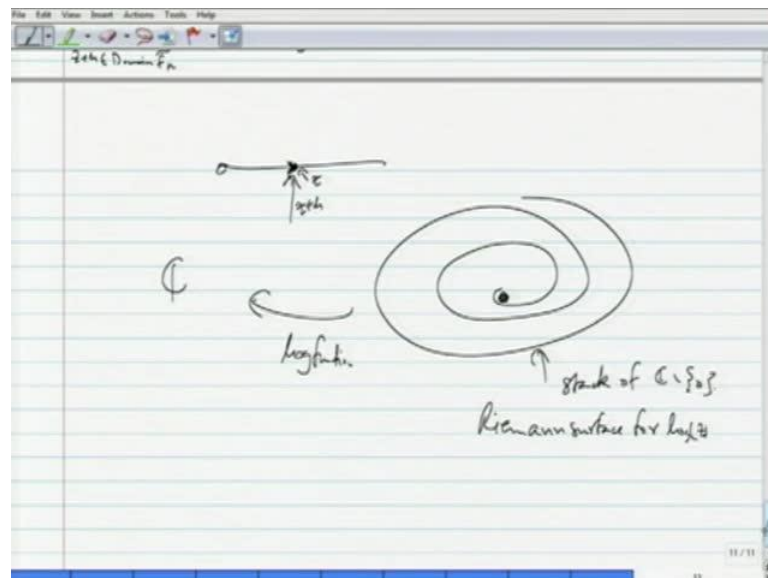 File Edit View Insert Actions Tools Help
z+h ∈ Domain F̃n
z
z+h
ℂ
log function
stack of ℂ \ {0}.
Riemann surface for log z
11/11